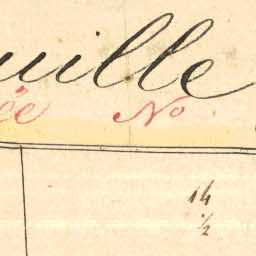 uille
ée No
14
½